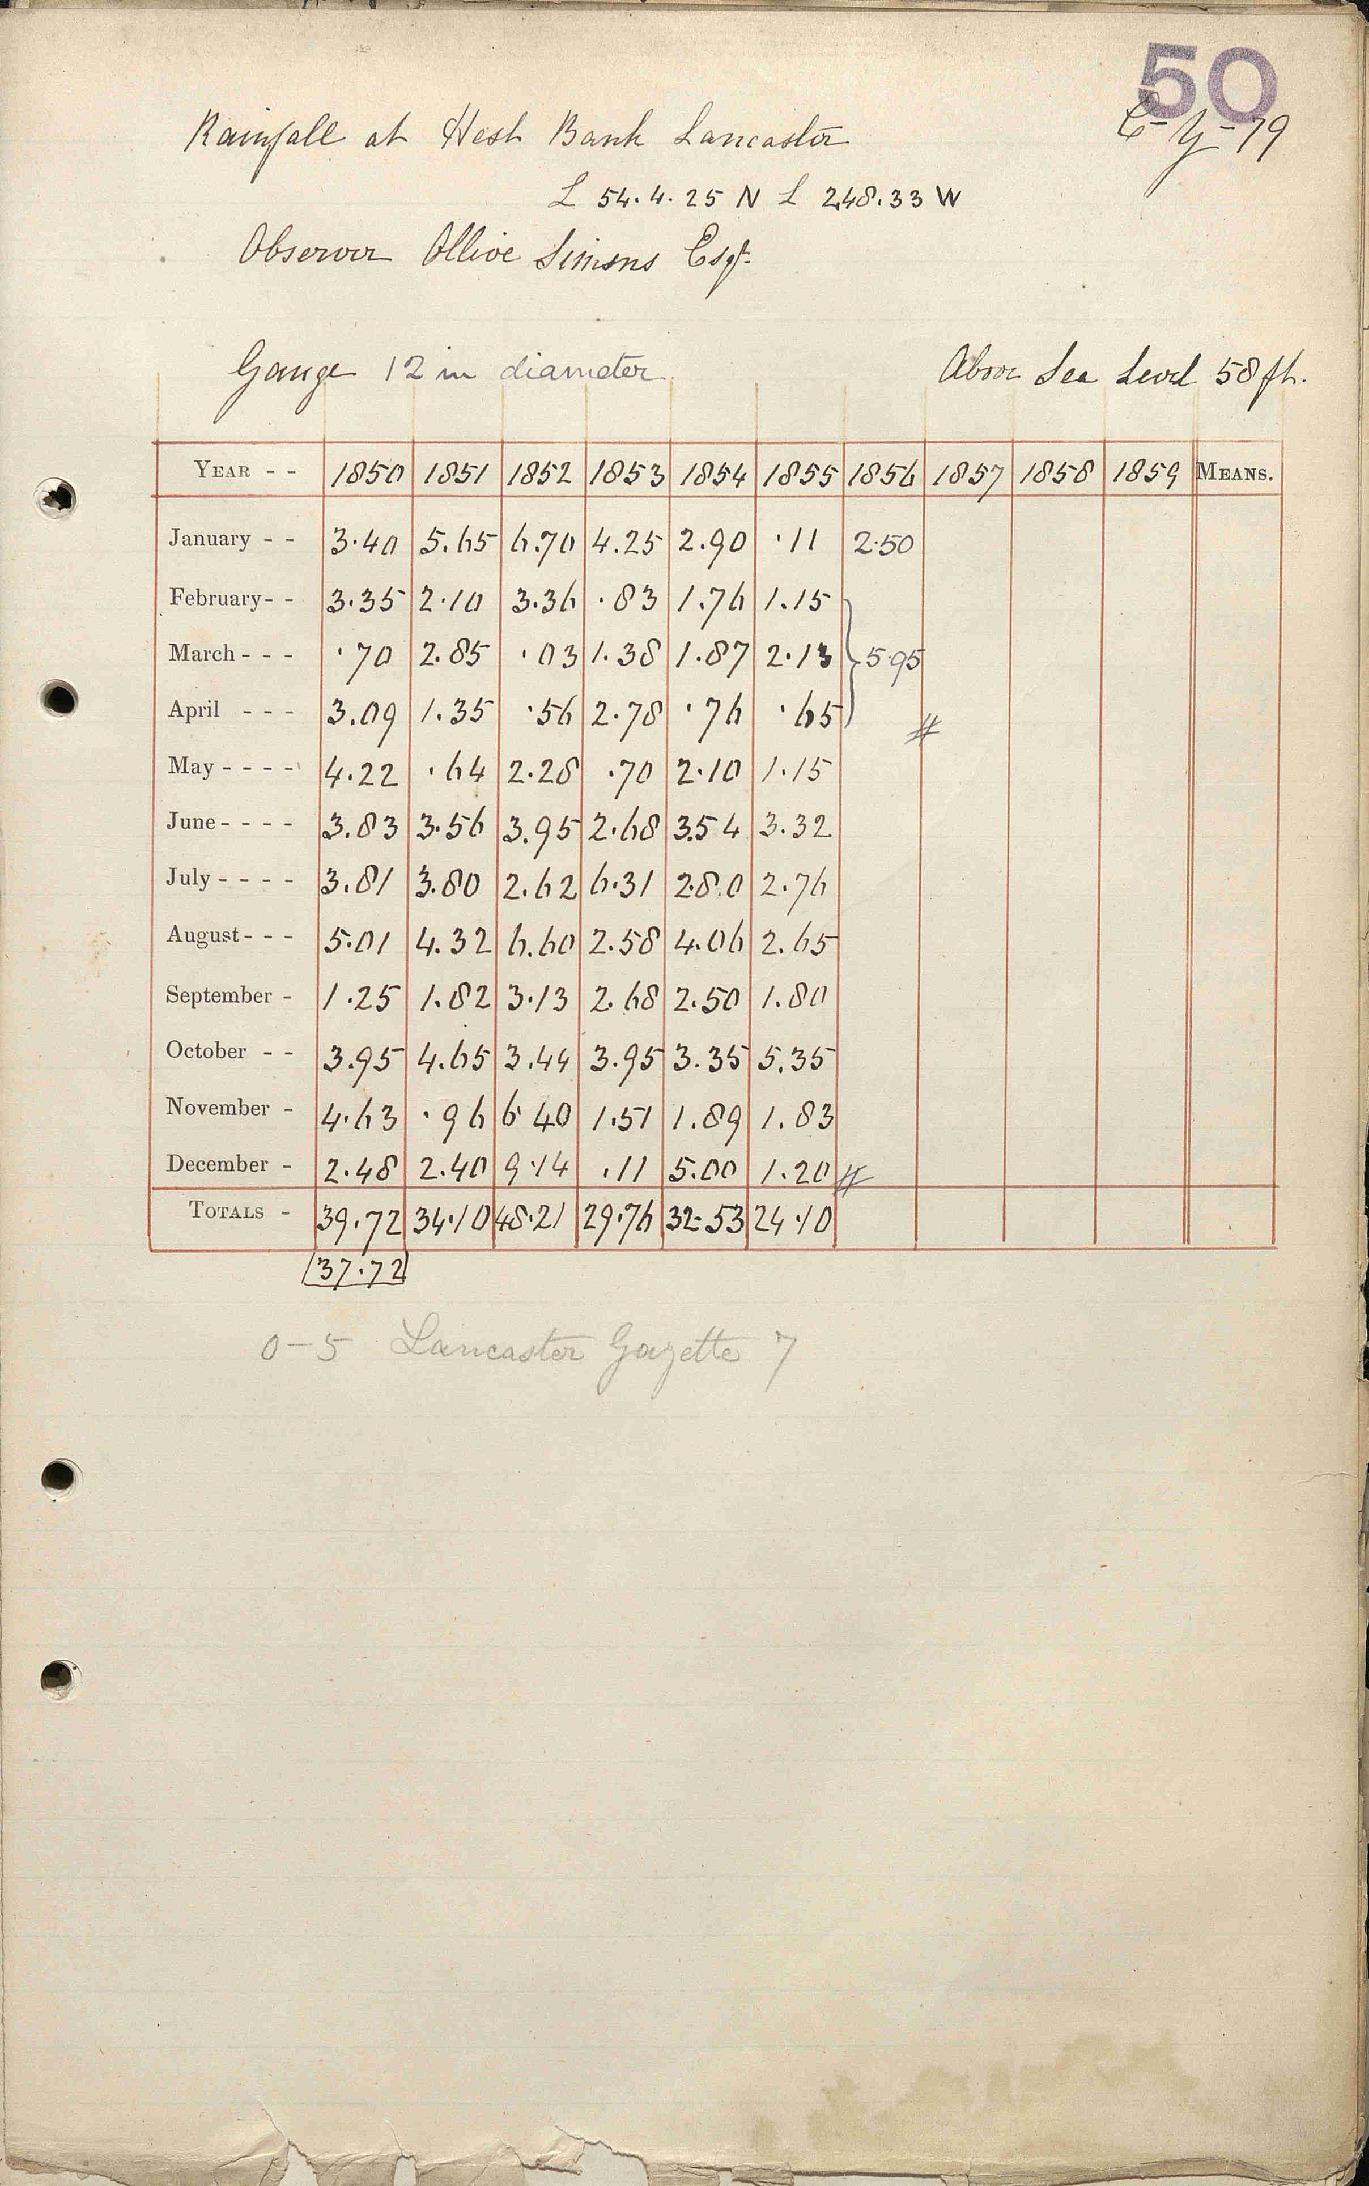 50
C-y-79
Rainfall at Hest Bank Lancaster
L 54.4.25 N L 2.48.33 W
Observer Ollive Simsns Esqr.
Gauge 12 in diameter.
Above Sea Level 58 ft.
YEAR - - 1850 1851 1852 1853 1854 1855 1856 1857 1858 1859 MEANS.
January - - 3.40 5.65 6.70 4.25 2.90 .11 2.50
February - - 3.35 2.10 3.36 .83 1.76 1.15
March - - - .70 2.85 .03 1.38 1.87 2.13 } 5.95
April - - - 3.09 1.35 .56 2.78 .76 .65 #
May - - - - 4.22 .64 2.28 .70 2.10 1.15
June - - - - 3.83 3.56 3.95 2.68 3.54 3.32
July - - - - 3.81 3.80 2.62 6.31 2.80 2.76
August - - - 5.01 4.32 6.60 2.58 4.06 2.65
September - 1.25 1.82 3.13 2.68 2.50 1.80
October - - 3.95 4.65 3.44 3.95 3.35 5.35
November - 4.63 .96 6 40 1.51 1.89 1.83
December - 2.48 2.40 9.14 .11 5.00 1.20 #
TOTALS - 39.72 34.10 48.21 29.76 32.53 24.10
37.72
0-5 Lancaster Gazette 7